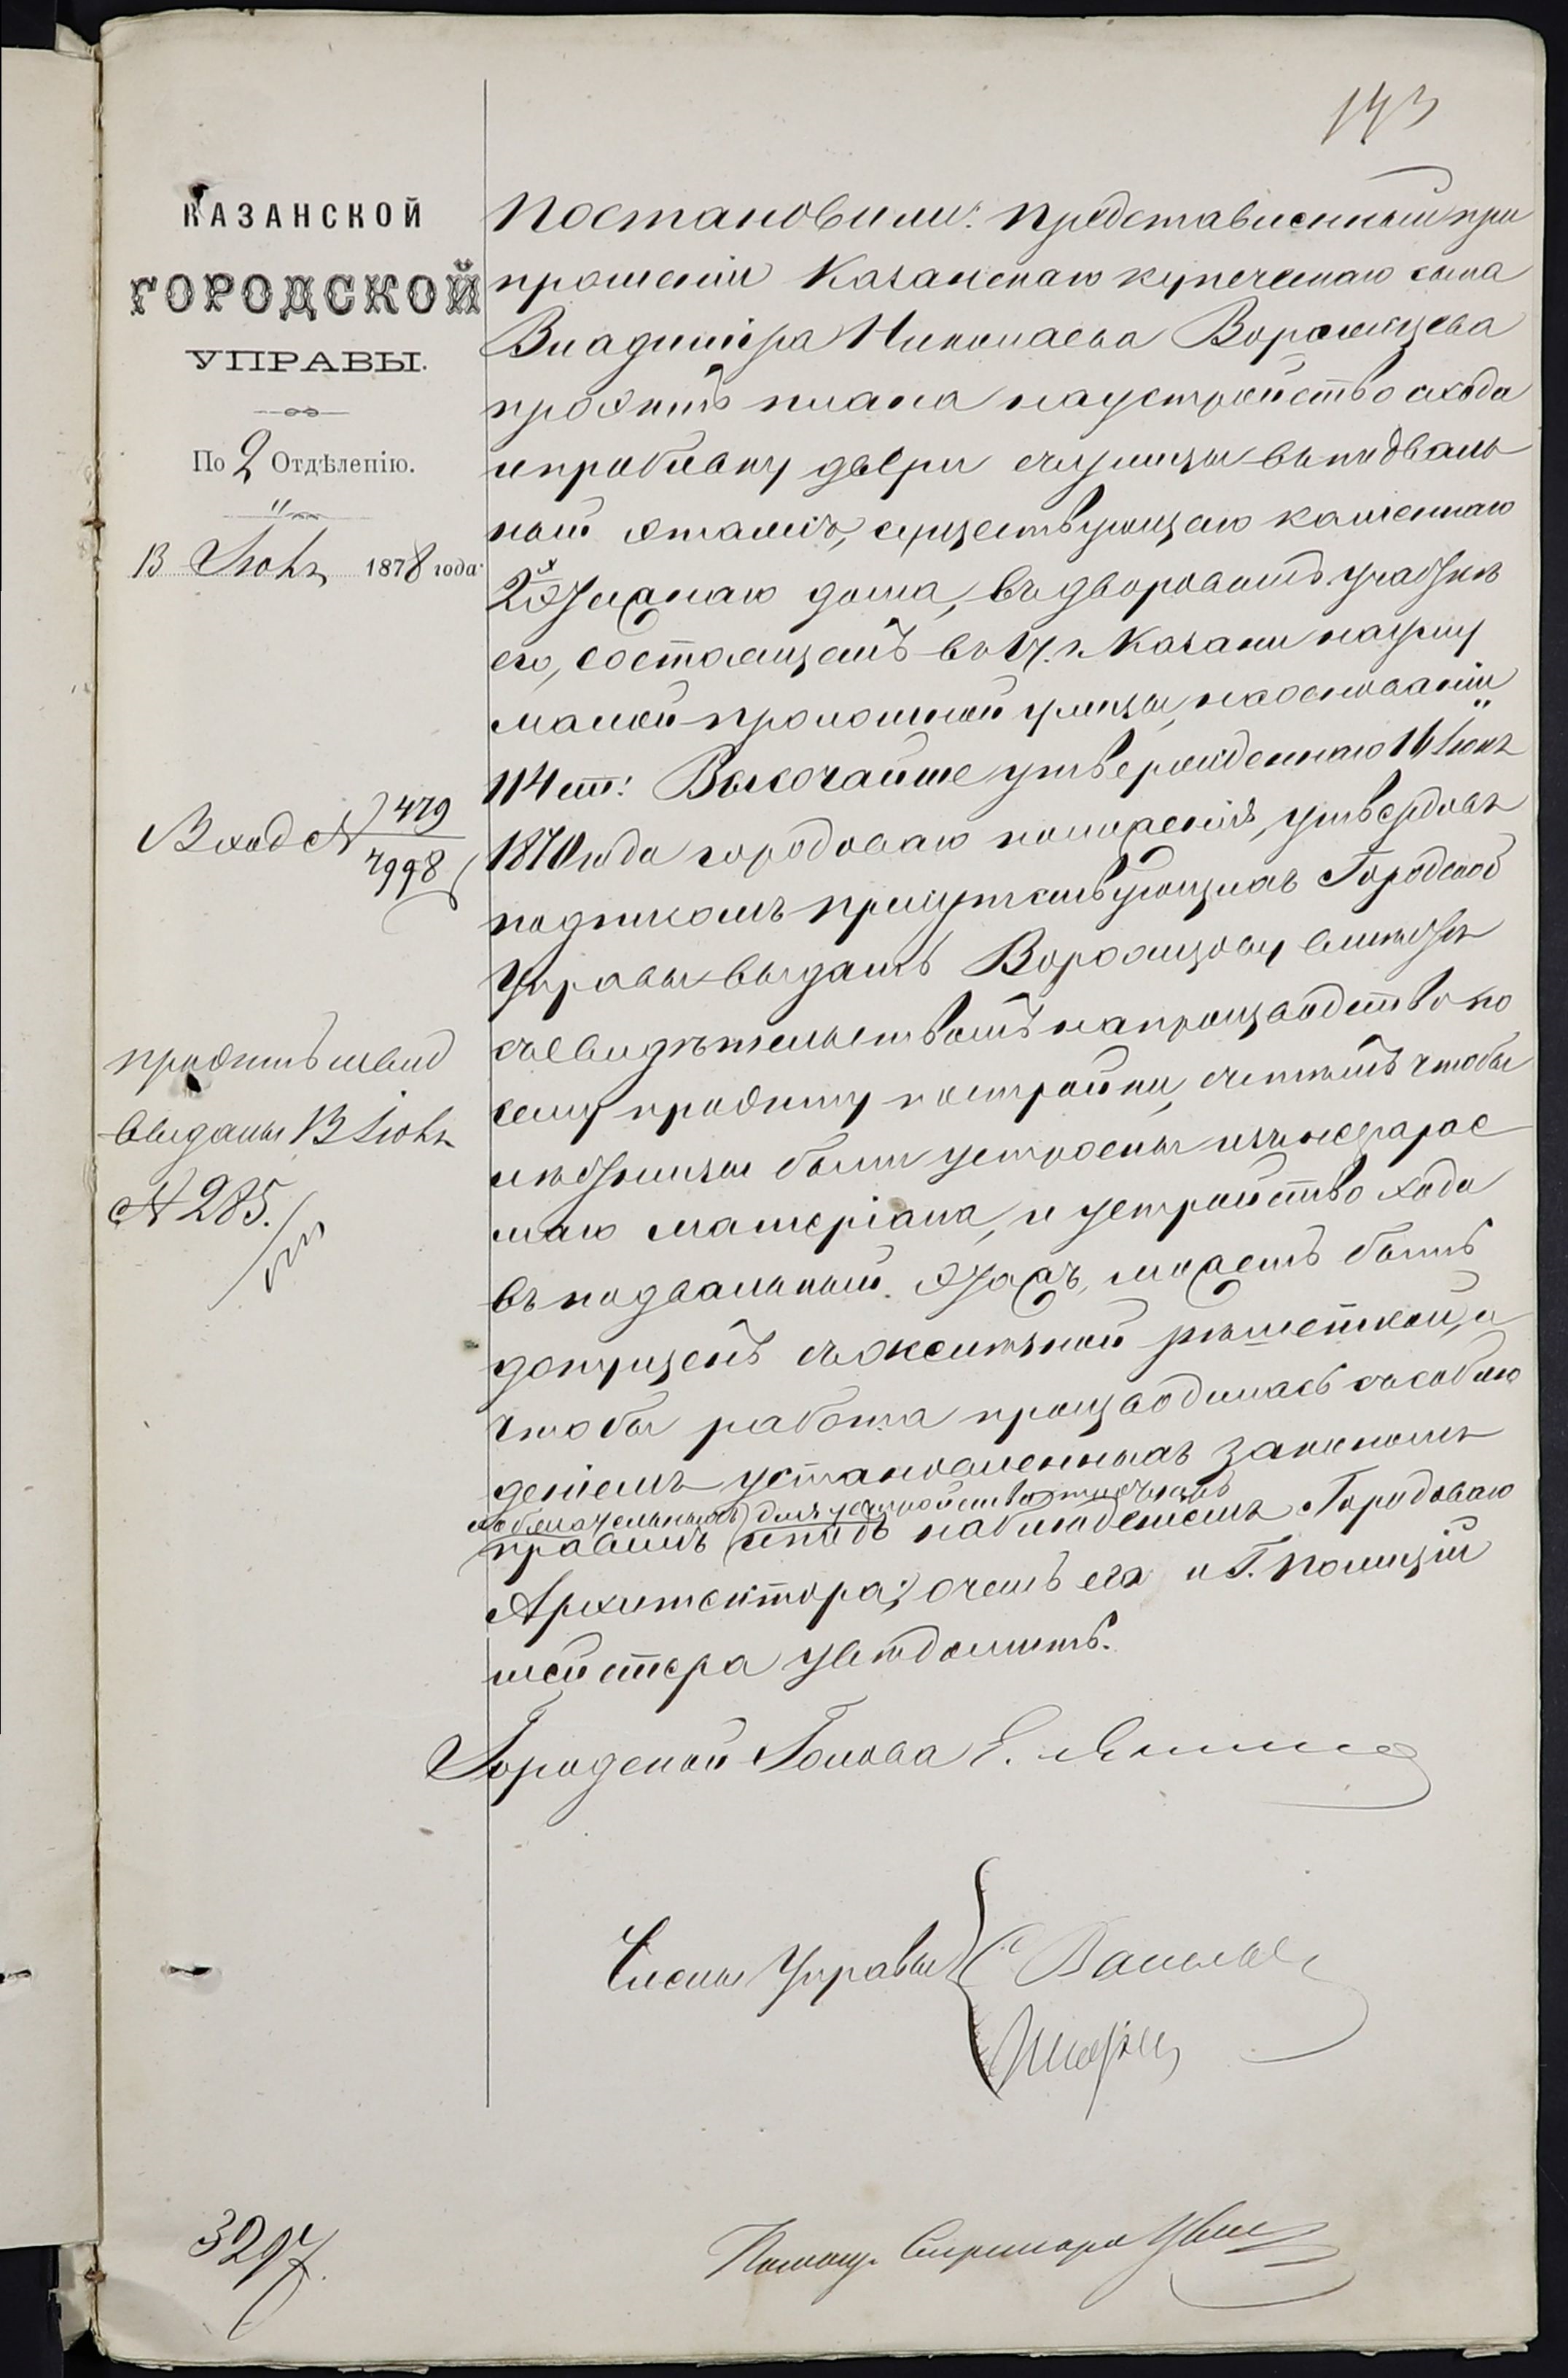 143
КАЗАНСКОЙ
ГОРОДСКОЙ
УПРАВЫ.
По 2 Отдѣленію.
13 Іюня 1878 года
Вход № 479
7998
проэктъ и свид
выданы 13 Іюня
№ 285.
Постановили: Представленный при
прошеніи Казанскаго купеческаго сына
Владиміра Николаева Воронцева
проэктъ плана на устройство схода
и пробивку двери съ улицы въ подваль
ный этажъ, существующаго каменнаго
2 х этажнаго дома, въ дворовомъ участкѣ
его, состоящемъ въ 1 ч. г. Казани на углу
малой проломной улицы, на основаніи
114 ст: Высочайше утвержденнаго 16 Іюня
1870 года городоваго положенія, утвердивъ
подписомъ присутствующихъ Городской
Управы выдать Воронцову вмѣстѣ
съ свидѣтельствомъ на производство по
сему проэкту постройки, съ тѣмъ чтобы
лѣстницы были устроены изъ несгарае
маго матеріала, и устройство схода
въ подвальный этажъ, можетъ быть
допущенъ съ желѣзной рѣшеткой, и
чтобы работа производилась съ соблю
деніемъ установленныхъ закономъ
правилъ и подъ наблюденіемъ Городоваго
Архитектора; о чемъ его и Г. Полиціи
мейстера увѣдомить.
Городской Голова Е.
Члены Управы
Помощ. Секретаря
3297